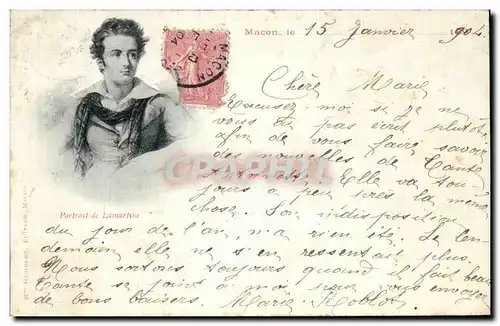 Macon, le 15 Janvier 1904.
Chère Marie
Excusez-moi si je ne
vous ai pas écrit plutôt
afin de vous faire savoir
des nouvelles de Tante
Elle va tou-
jours à peu près la même
chose. Son indisposition
du jour de l'an, n'a rien été. Le len-
demain elle ne s'en ressentait plus.
Nous sortons toujours quand il fait beau
Tante se joint à moi pour vous envoyer
de bons baisers. Marie Noblot.
MACON
04
Portrait de Lamartine